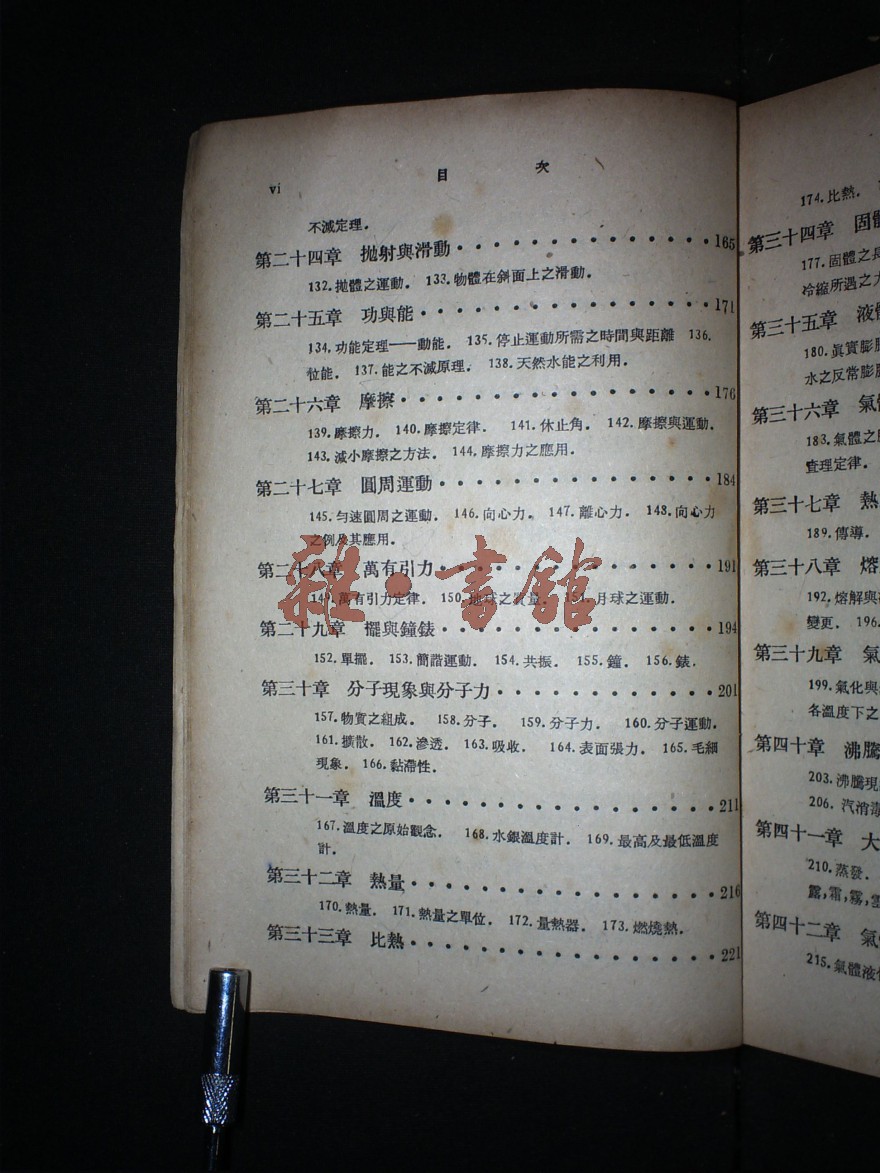 vi 目 次
不滅定理.
第二十四章 拋射與滑動 165
132.拋體之運動. 133.物體在斜面上之滑動.
第二十五章 功與能 171
134.功能定理——動能. 135.停止運動所需之時間與距離 136.
位能. 137.能之不滅原理. 138.天然水能之利用.
第二十六章 摩擦 176
139.摩擦力. 140.摩擦定律. 141.休止角. 142.摩擦與運動.
143.減小摩擦之方法. 144.摩擦力之應用.
第二十七章 圓周運動 184
145.勻速圓周之運動. 146.向心力. 147.離心力. 148.向心力
之例及其應用.
第二十八章 萬有引力 191
149.萬有引力定律. 150.地球之質量. 151.月球之運動.
第二十九章 擺與鐘錶 194
152.單擺. 153.簡諧運動. 154.共振. 155.鐘. 156.錶.
第三十章 分子現象與分子力 201
157.物質之組成. 158.分子. 159.分子力. 160.分子運動.
161.擴散. 162.滲透. 163.吸收. 164.表面張力. 165.毛細
現象. 166.黏滯性.
第三十一章 溫度 211
167.溫度之原始觀念. 168.水銀溫度計. 169.最高及最低溫度
計.
第三十二章 熱量 216
170.熱量. 171.熱量之單位. 172.量熱器. 173.燃燒熱.
第三十三章 比熱 221
雜·書館
174.比熱.
第三十四章 固體
177.固體之長
冷縮所遇之
第三十五章 液
180.眞實膨
水之反常膨
第三十六章 氣
183.氣體之
查理定律.
第三十七章 熱
189.傳導.
第三十八章 熔
192.熔解與
變更. 196.
第三十九章 氣
199.氣化與
各溫度下之
第四十章 沸騰
203.沸騰現
206.汽消毒
第四十一章 大
210.蒸發.
露,霜,霧,
第四十二章 氣
215.氣體液